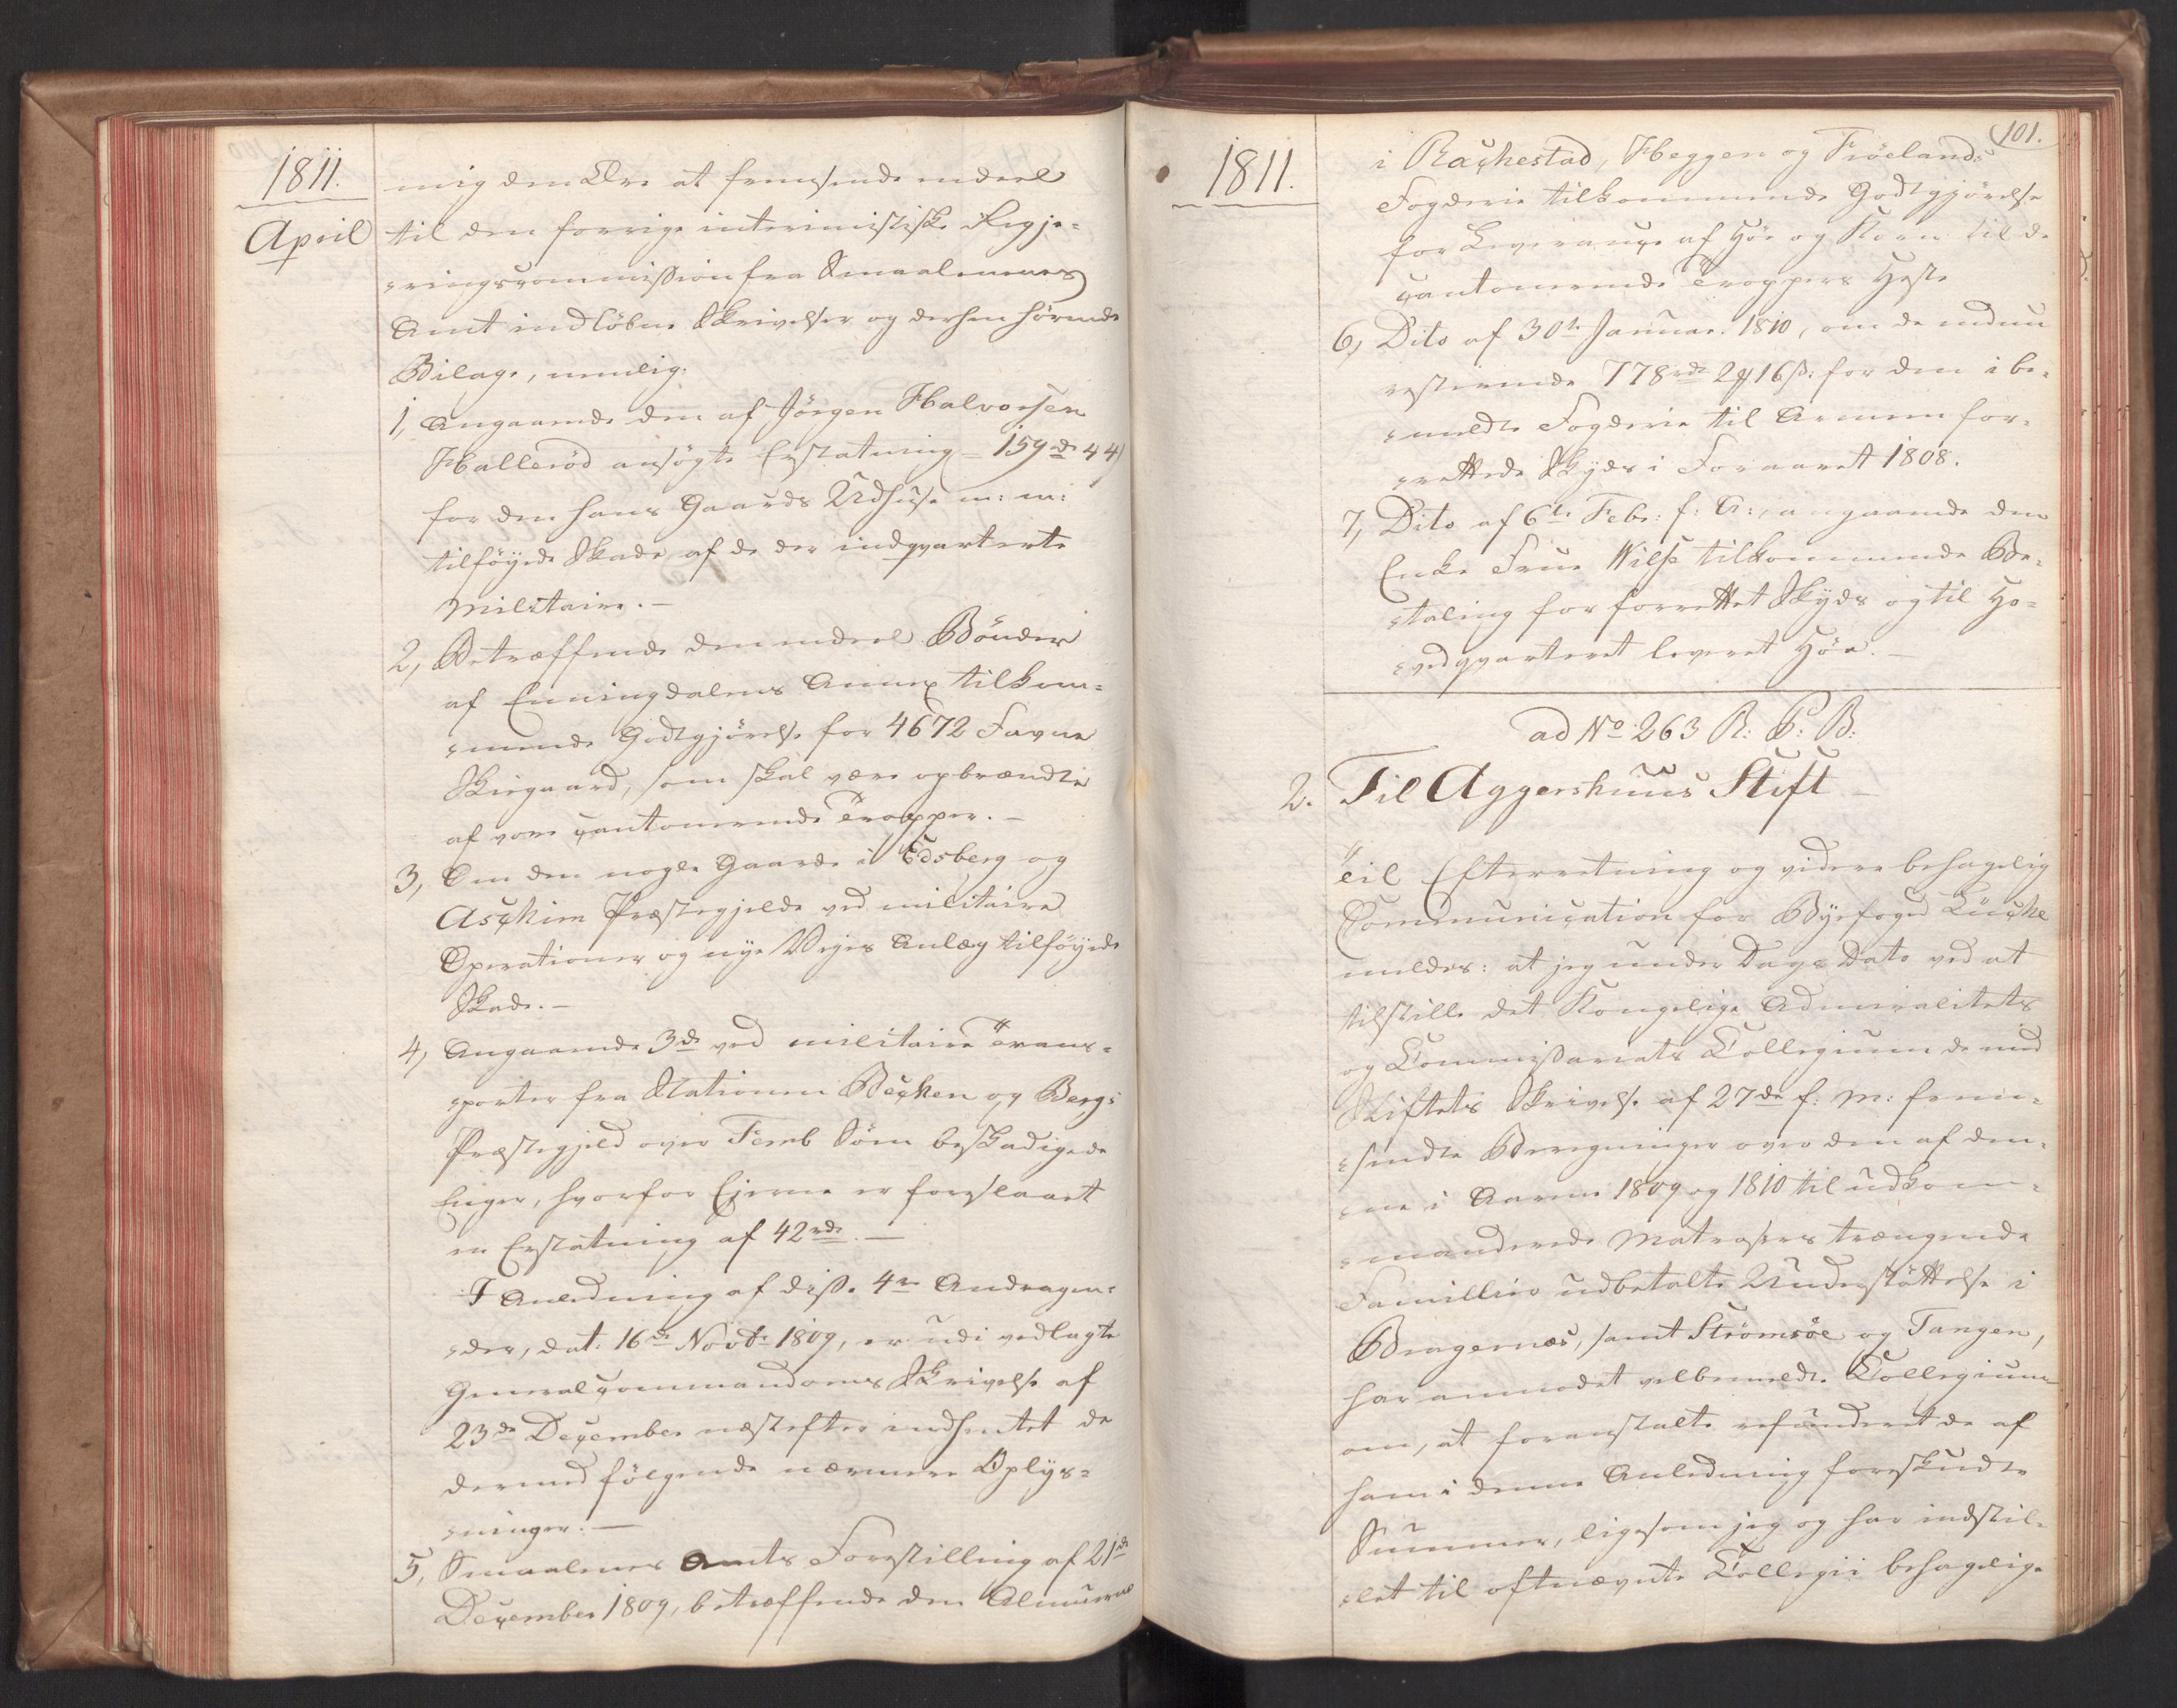 1811.
April
mig den Ære at fremsende endeel
til den forrige interimistiske Regje=
=ringscommission fra Smaalenenes
Amt indløbne Skrivelser og derhen hørende
Bilage, nemlig:
1, Angaaende den af Jörgen Halvorsen
Hallerød ansøgte Erstatning = 159 rd 44
for den hans Gaards Udhuse m: m:
tilføyede Skade af de der indqvarterte
Militaire. —
2, Betræffende den endeel Bönder
af Enningdalens Annex tilkom=
=mende Godtgjörelse for 4672 Favne
Skigaard, som skal være opbrændte
af vore cantonerende Tropper. —
3, Om den nogle Gaarde i Edsberg og
Aschim Præstegjelde ved militaire
Operationer og nye Vejes Anlæg tilføyede
Skade. —
4, Angaaende 3de ved militaire Trans=
=porter fra Stationen Becken og Bergs
Præstegjeld over Femb Söm beskadigede
Enger, hvorfor Ejerne er foreslaaet
en Erstatning af 42 rdr. —
I Anledning af disse 4re Andragen=
=der, dat: 16de Novbr 1809, er udi vedlagte
Generalcommandoens Skrivelse af
23de December næstefter indhentet de
dermed følgende nærmere Oplys=
=ninger. —
5, Smaalenes Amts Forestilling af 21de
December 1809, betræffende den Almuerne
1811.
101.
i Rachestad, Heggen og Fröelands
Fogderie tilkommende Godtgjörelse
for Leverance af Höe og Korn til de
cantonerende Troppers Heste
6, Dito af 30te Januar: 1810, om de endnu
resterende 778 rdr 2 # 16 ß: for den i be=
=meldte Fogderie til Armeen for=
=rettede Skyds i Foraaret 1808.
7, Dito af 6te Febr: f: A:, angaaende den
Enke Frue Wilse tilkommende Be=
=taling for forrettet Skyds og til Ho=
=vedqvarteret leveret Höe. —
ad No 263 R: C: B:
2. Til Aggershuus Stift —
Til Efterretning og videre behagelig
Communication for Byefoged Lücke
meldes: at jeg under Dags Dato ved at
tilstille det Kongelige Admiralitets
og Commissariats Collegium de med
Stiftets Skrivelse af 27de f: M: frem=
=sendte Beregninger over den af den=
=ne i Aarene 1809 og 1810 til udkom=
=manderede Matrosers trængende
Famillier udbetalte Understøttelse i
Bragernæs, samt Strömsöe og Tangen,
har anmodet velbemeldte Collegium
om, at foranstalte refunderet de af
ham i denne Anledning forskudte
Summer, ligesom jeg og har indstil=
=let til oftnævnte Collegii behagelige